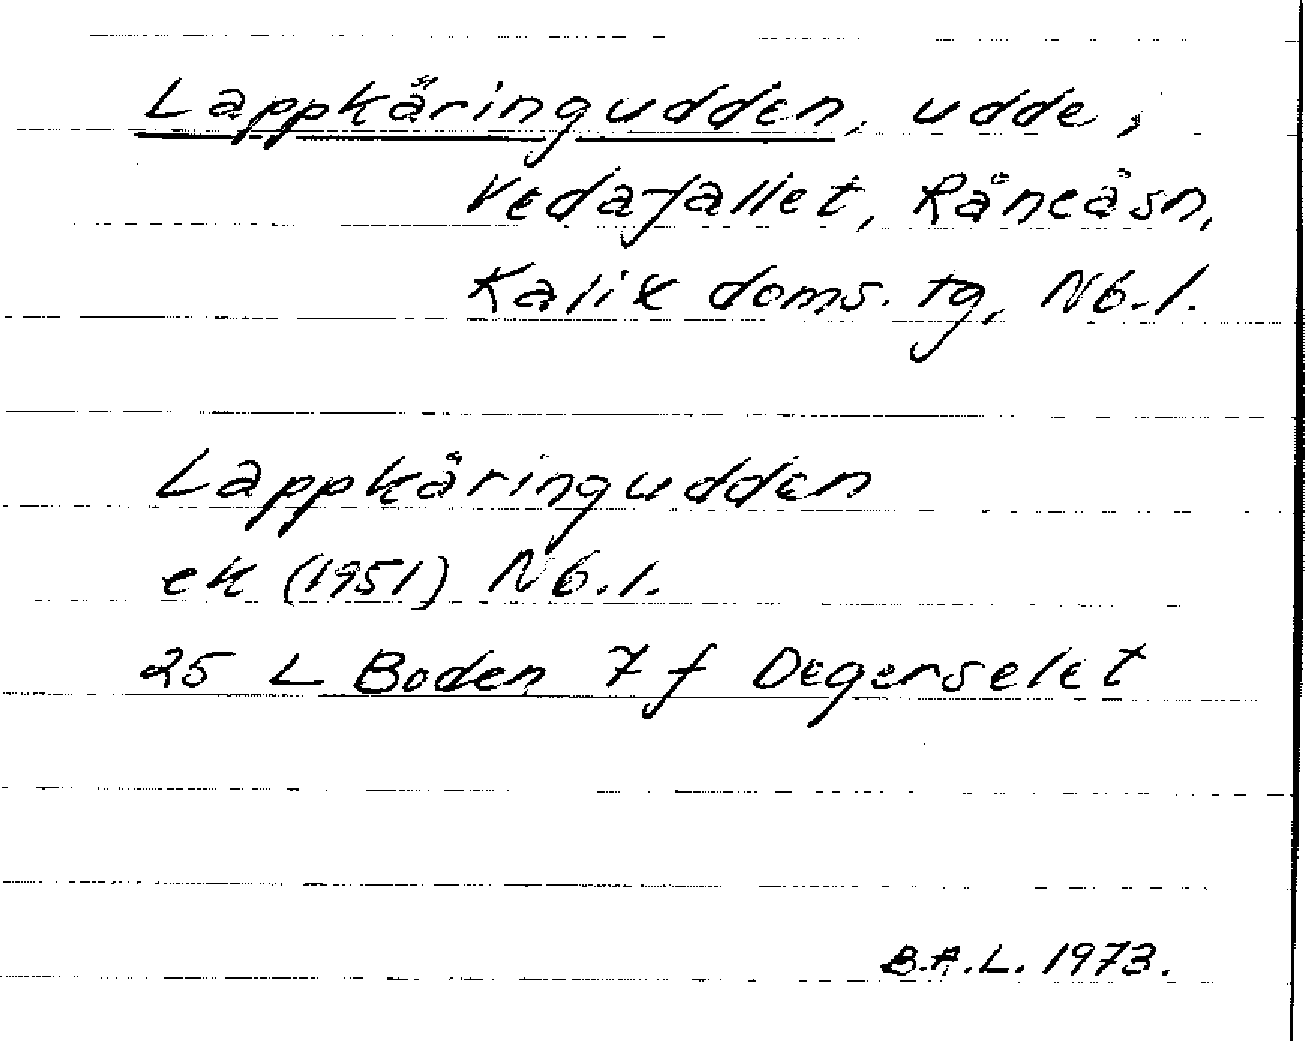 Lappkäringudden, udde,
Vedafallet, Råneåsn,
Kalix doms. tg, Nb. l.
Lappkäringudden
ek (1951) Nb. l.
25 L Boden 7 f Degerselet
B.A.L. 1973.